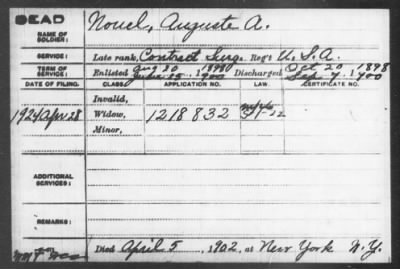 DEAD
NAME OF SOLDIER: Nouel, Auguste A.
SERVICE: Late rank, Contract Surg. Reg't U.S.A.
TERM OF SERVICE: Enlisted Aug 30, 1898 Discharged Oct 20, 1898
June 25, 1900 Sep 7, 1900
DATE OF FILING. CLASS. APPLICATION NO. LAW. CERTIFICATE NO.
Invalid,
1924 Apr 28 Widow, 1218832
Minor,
ADDITIONAL SERVICES:
REMARKS:
Died April 5, 1902, at New York N.Y.